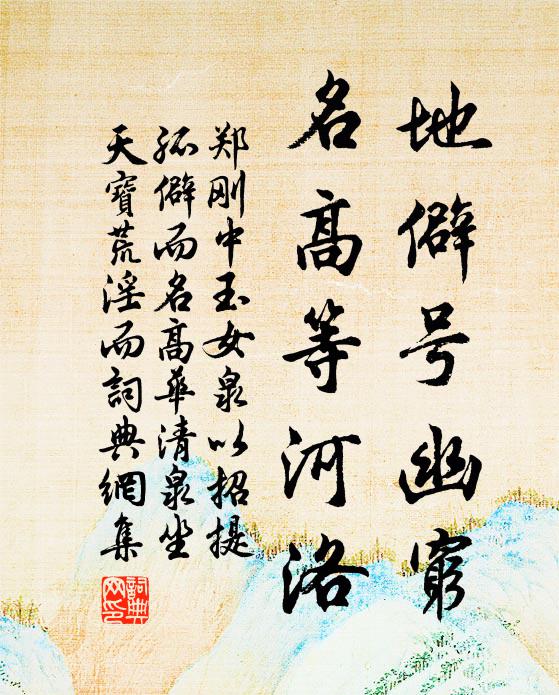 地僻号幽穷
名高等河洛
郑刚中玉女泉以招提
孤僻而名高华清泉坐
天寶荒淫而詞典網集
詞典網印